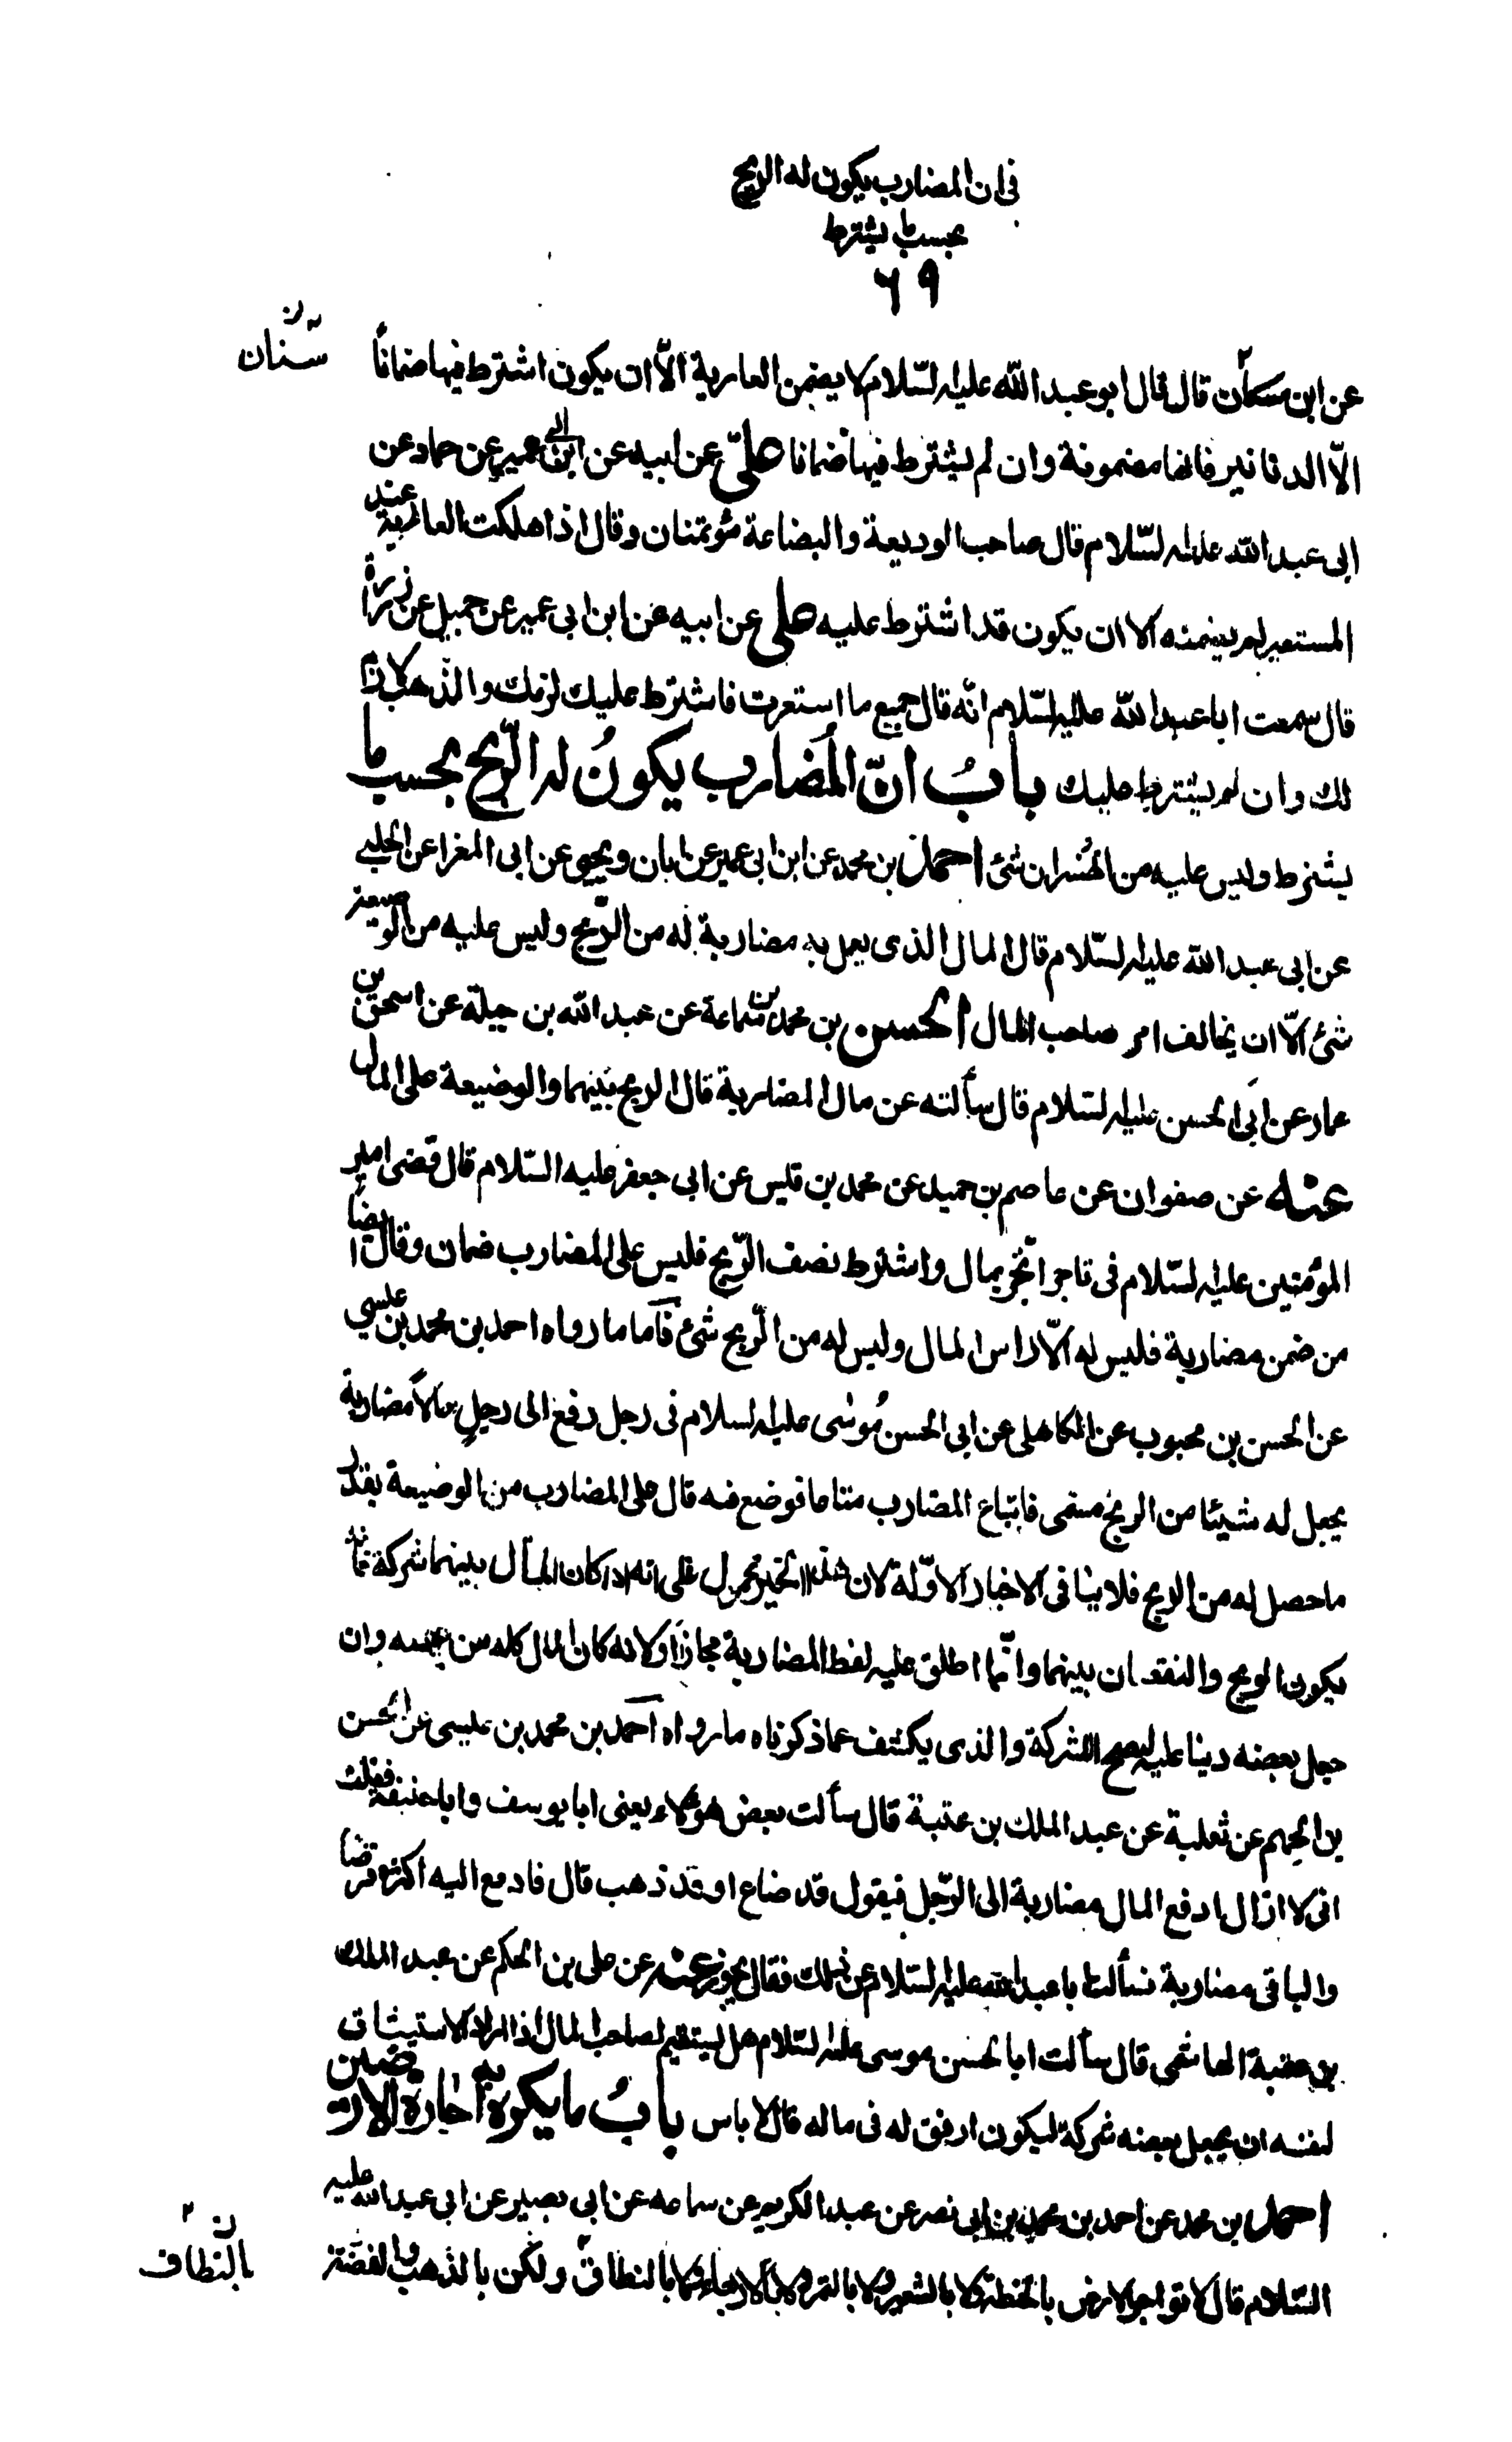 في ان المضارب يكون له الربح
بحسب ما يشترط
٦٩
سنان
عن ابن مسكان قال قال ابو عبد الله عليه السّلام لا يضمن العارية الّا ان يكون اشترط فيها ضمانًا
الّا الدنانير فانها مضمونة وان لم يشترط فيها ضمانا علىّ عن ابيه عن ابن ابي عمير عن حماد عن
ابى عبد الله عليه السّلام قال صاحب الوديعة والبضاعة مؤتمنان وقال اذا هلكت العارية عند
المستعير لم يضمنه الا ان يكون قد اشترط عليه على عن ابيه عن ابن ابى عمير عن جميل عن زرارة
قال سمعت ابا عبد الله عليه السّلام انّه قال جميع ما استعرت فاشترط عليك لزمك والذهب لازم
لك وان لم يشترط عليك بابُ انّ المُضارب يكونُ له الرّبح بحسب ما
يشترط وليس عليه من الخسران شئ احمد بن محمد عن ابن ابى عمير عن ابان ويحيى عن ابى المغرا عن الحلبي
عن ابى عبد الله عليه السّلام قال المال الذى يعمل به مضاربة له من الرّبح وليس عليه من الوضيعة
شئ الّا ان يخالف امر صاحب المال الحسن بن محمد بن سماعة عن عبد الله بن جبلة عن اسحق بن
عمار عن ابى الحسن عليه السّلام قال سألته عن مال المضاربة قال الربح بينهما والوضيعة على المال
عنه عن صفوان عن عاصم بن حميد عن محمد بن قيس عن ابى جعفر عليه السّلام قال قضى امير
المؤمنين عليه السّلام فى تاجر اتّجر بمال واشترط نصف الرّبح فليس على المضارب ضمان وقال ايضًا
من ضمن مضاربة فليس له الّا راس المال وليس له من الرّبح شئ فاما ما رواه احمد بن محمد بن عيسي
عن الحسن بن محبوب عن الكاهلى عن ابى الحسن مُوسٰى عليه السلام فى رجل دفع الى رجلٍ مالاً مضاربة
يجعل له شيئا من الربح مسمى فابتاع المضارب متاعا فوضع فيه قال على المضارب من الوضيعة بقدر
ما حصل له من الربح فلا ينافى الاخبار الاوّلة لان هذا الخبر محمول على انه اذا كان المال بينهما شركة فانه
يكون الربح والنقصان بينهما وانّما اطلق عليه لفظ المضاربة مجازًا ولانه كان المال كله من جهته وان
جعل بعضه دينا عليه ليصح الشركة والذى يكشف عما ذكرناه ما رواه احمد بن محمد بن عليسى عن الحسن
بن الجهم عن ثعلبة عن عبد الملك بن عتبة قال سألت بعض هؤلاء يعنى ابا يوسف وابا حنيفة فقلت
انى لا ازال ادفع المال مضاربة الى الرّجل فيقول قد ضاع او قد ذهب قال فادفع اليه اكثره قرضا
والباقى مضاربة فسألت ابا عبد الله عليه السّلام عن ذلك فقال يجوز عنه عن على بن الحكم عن عبد الملك
بن عتبة الهاشمى قال سألت ابا الحسن موسى عليه السّلام هل يستقيم لصاحب المال اذا اراد الاستيثاق
لنفسه ان يجعل بعضه شركة ليكون اوفق له فى ماله قال لا باس بابُ ما يكره به اجارة الارضين
احمد بن محمد عن احمد بن محمد بن ابى نصر عن عبد الكريم عن سماعه عن ابى بصير عن ابى عبد الله عليه
السّلام قال لا تواجر الارض بالحنطة ولا بالشعير ولا بالتمر ولا بالاربعاء ولا بالنطاق ولكن بالذهب والفضّة
بالنّطاف